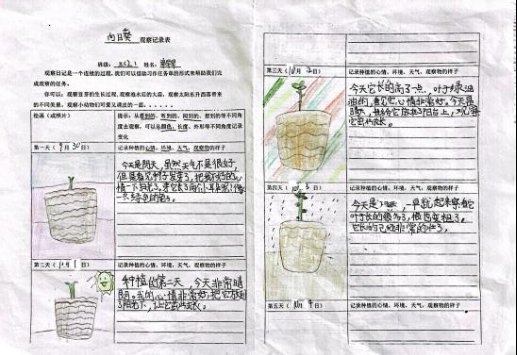 向日葵 观察记录表
班级：
姓名：
观察日记是一个连续的过程，我们可以借助习作任务单的形式来帮助我们完
成观察的任务。
你可以：观察豆芽的生长过程，观察池水后的大蒜，观察太阳东升西落带来
的不同美景，观察小动物们可爱又调皮的一面……
绘画（或照片）
提示：从看到的、听到的、闻到的、想到的等不同角
度去观察，可以从颜色、长度、外形等不同角度记录
变化
第一天（9月30日）
记录种植的心情、环境、天气、观察物的样子
今天是阴天，虽然天气不是很好，
但是看它种子发芽了，把我
情一下
第二天（10月1日）
记录种植的心情、环境、天气、观察物的样子
种植的第二天，今天非常晴
朗。我的心情非常好，把它放到
了阳台下，让它
第三天（10月2日）
记录种植的心情、环境、天气、观察物的样子
今天它长的高了一点，叶子绿油
油的，看它心情非常好。今天是
晴天，
第四天（10月3日）
记录种植的心情、环境、天气、观察物的样子
今天是下雨，一早就起来察看它
叶子长的很多了，
它长的已经非常的壮了。
第五天（10月4日）
记录种植的心情、环境、天气、观察物的样子